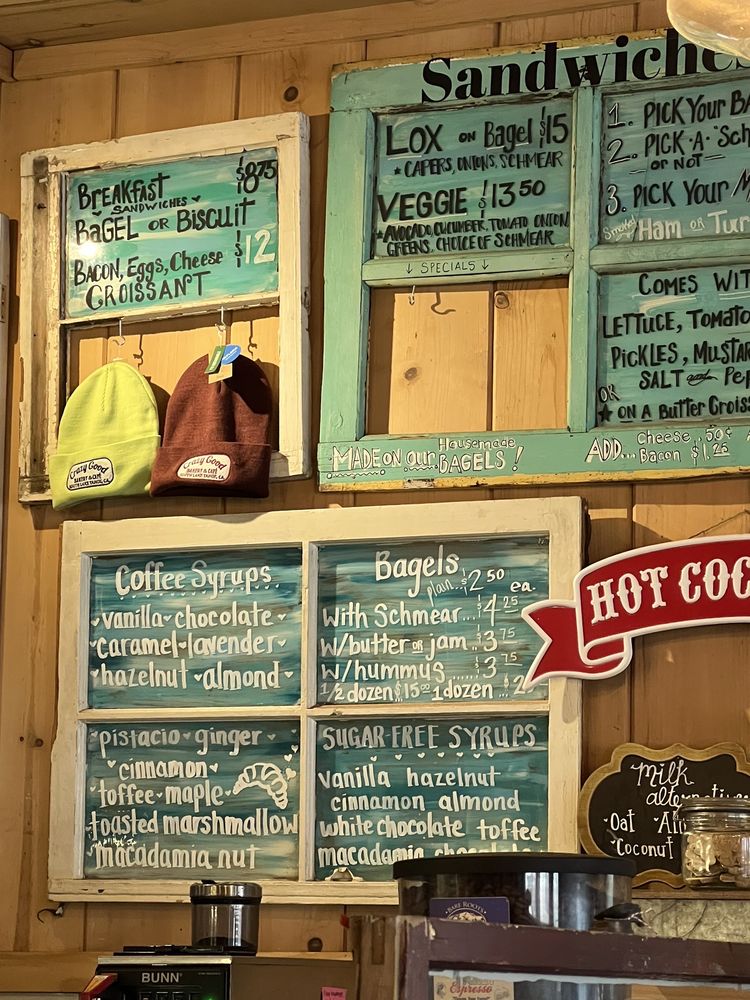 Breakfast
SANDWICHES
$8.75
BAGEL OR BISCUIT
BACON, Eggs, Cheese $12
CROISSANT
Crazy Good
BAKERY & CAFE
SOUTH LAKE TAHOE, CA.
Crazy Good
BAKERY & CAFE
SOUTH LAKE TAHOE, CA.
Sandwiches
LOX on Bagel $15
* CAPERS, ONIONS, SCHMEAR
VEGGIE $13.50
* AVOCADO, CUCUMBER, TOMATO ONION
GREENS, CHOICE OF SCHMEAR
↓ SPECIALS ↓
1. PICK YOUR BA
2. PICK·A·"SCH
— OR NOT —
3. PICK YOUR M
Smoked Ham OR Tur
COMES WIT
LETTUCE, TOMATO
PICKLES, MUSTAR
SALT and Pep
OR
★ ON A BUTTER CROIS
MADE ON our Housemade BAGELS!
ADD... Cheese 50¢
Bacon $1.25
Coffee Syrups
vanilla chocolate
caramel lavender
hazelnut almond
Bagels
plain... $2.50 ea.
With Schmear... $4.25
w/butter OR jam.. $3.75
w/hummus..... $3.75
1/2 dozen $15.00 1dozen.. $2
pistacio ginger
cinnamon
toffee maple
toasted marshmallow
macadamia nut
SUGAR FREE SYRUPS
vanilla hazelnut
cinnamon almond
white chocolate toffee
macadamia chocolate
HOT COC
Milk
alternatives
Oat Al
Coconut
BUNN
BARE ROOTS
Espresso